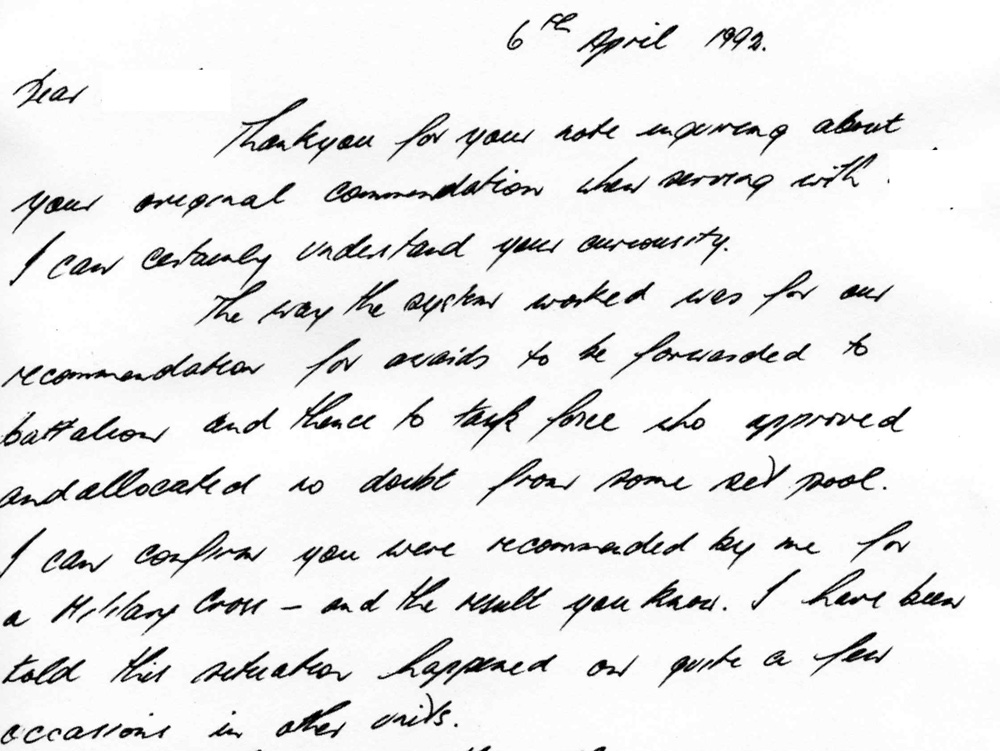 6th April 1992.
Dear
Thankyou for your note inquiring about
your original commendation when serving with .
I can certainly understand your curiousity.
The way the system worked was for our
recommendation for awards to be forwarded to
battalion and thence to task force who approved
and allocated no doubt from some set pool.
I can confirm you were recommended by me for
a Military Cross – and the result you know. I have been
told this situation happened on quite a few
occasions in other units.